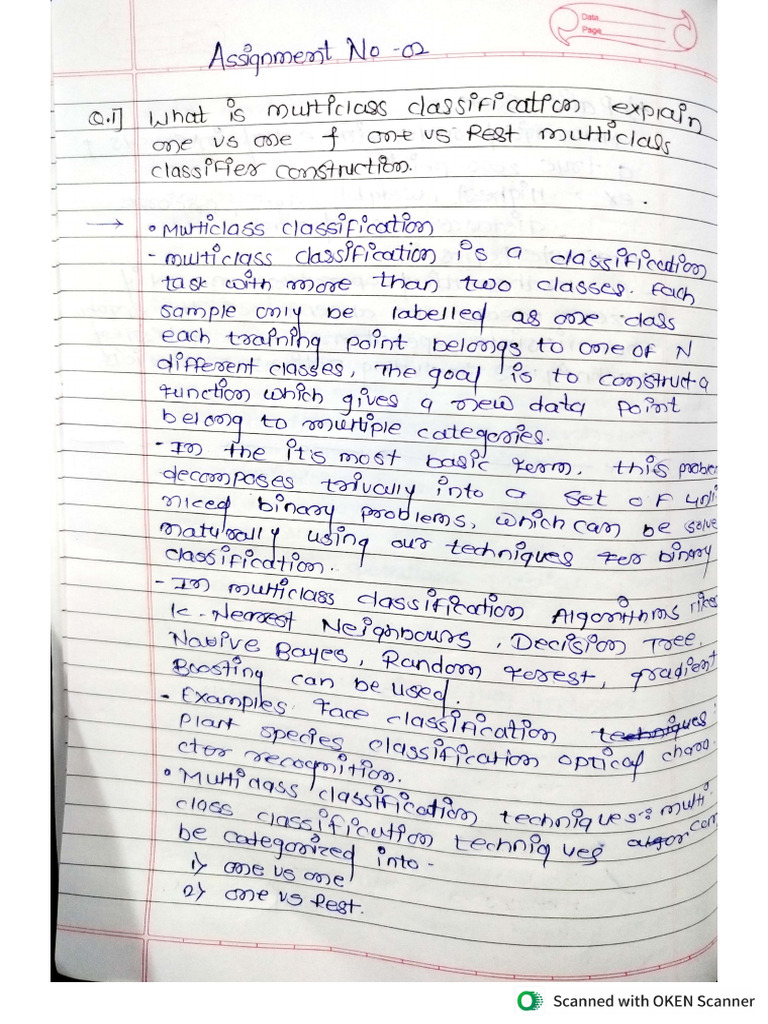 Date
Page
Assignment No -02
Q.1] What is multiclass classification explain
one vs one & one vs Rest multiclass
classifier construction.
→ • Multiclass classification
- multiclass classification is a classification
task with more than two classes. Each
sample only be labelled as one class
each training point belongs to one of N
different classes, The goal is to construct a
function which gives a new data point
belong to multiple categories.
- In the it's most basic term, this problem
decomposes trivally into a set of unli
miced binary problems, which can be solve
naturally using our techniques for binary
classification.
- In multiclass classification Algorithms like
K-Nearest Neighbours, Decision Tree,
Naive Bayes, Random Forest, gradient
Boosting can be used.
- Examples: Face classification techniques
plant species classification optical chara
cter recognition.
• Multiclass classification techniques: multi
class classification techniques can
be categorized into -
1) one vs one
2) one vs Rest.
Scanned with OKEN Scanner